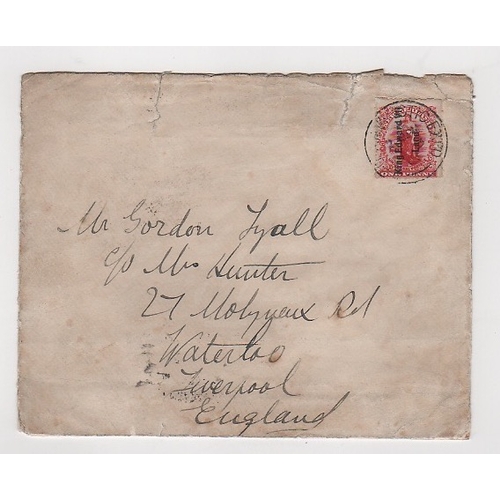 King Edward VII
Land
ONE PENNY
Mr Gordon Lyall
c/o Mrs Hunter
27 Molyneux Rd
Waterloo
Liverpool
England